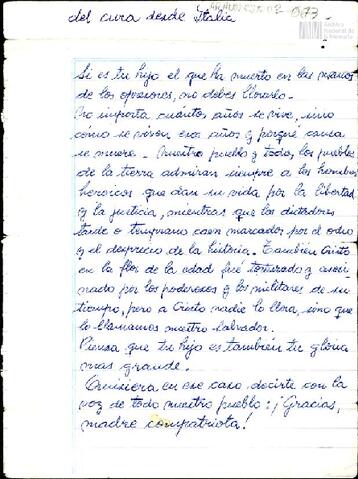 del cura desde Italia
073
Si es tu hijo el que ha muerto en las manos
de los opresores, no debes llorarlo.-
No importa cuántos años se vive, sino
cómo se viven esos años y porqué causa
se muere.- Nuestro pueblo y todos los pueblos
de la tierra admiran siempre a los hombres
heroicos que dan su vida por la libertad
y la justicia, mientras que los dictadores
tarde o temprano caen marcados por el odio
y el desprecio de la historia.- También Cristo
en la flor de la edad fue torturado y asesi
nado por los poderosos y los militares de su
tiempo, pero a Cristo nadie lo llora, sino que
lo llamamos nuestro salvador.
Piensa que tu hijo es también tu gloria
mas grande.
Quisiera en ese caso decirte con la
voz de todo nuestro pueblo: ¡Gracias,
madre compatriota!